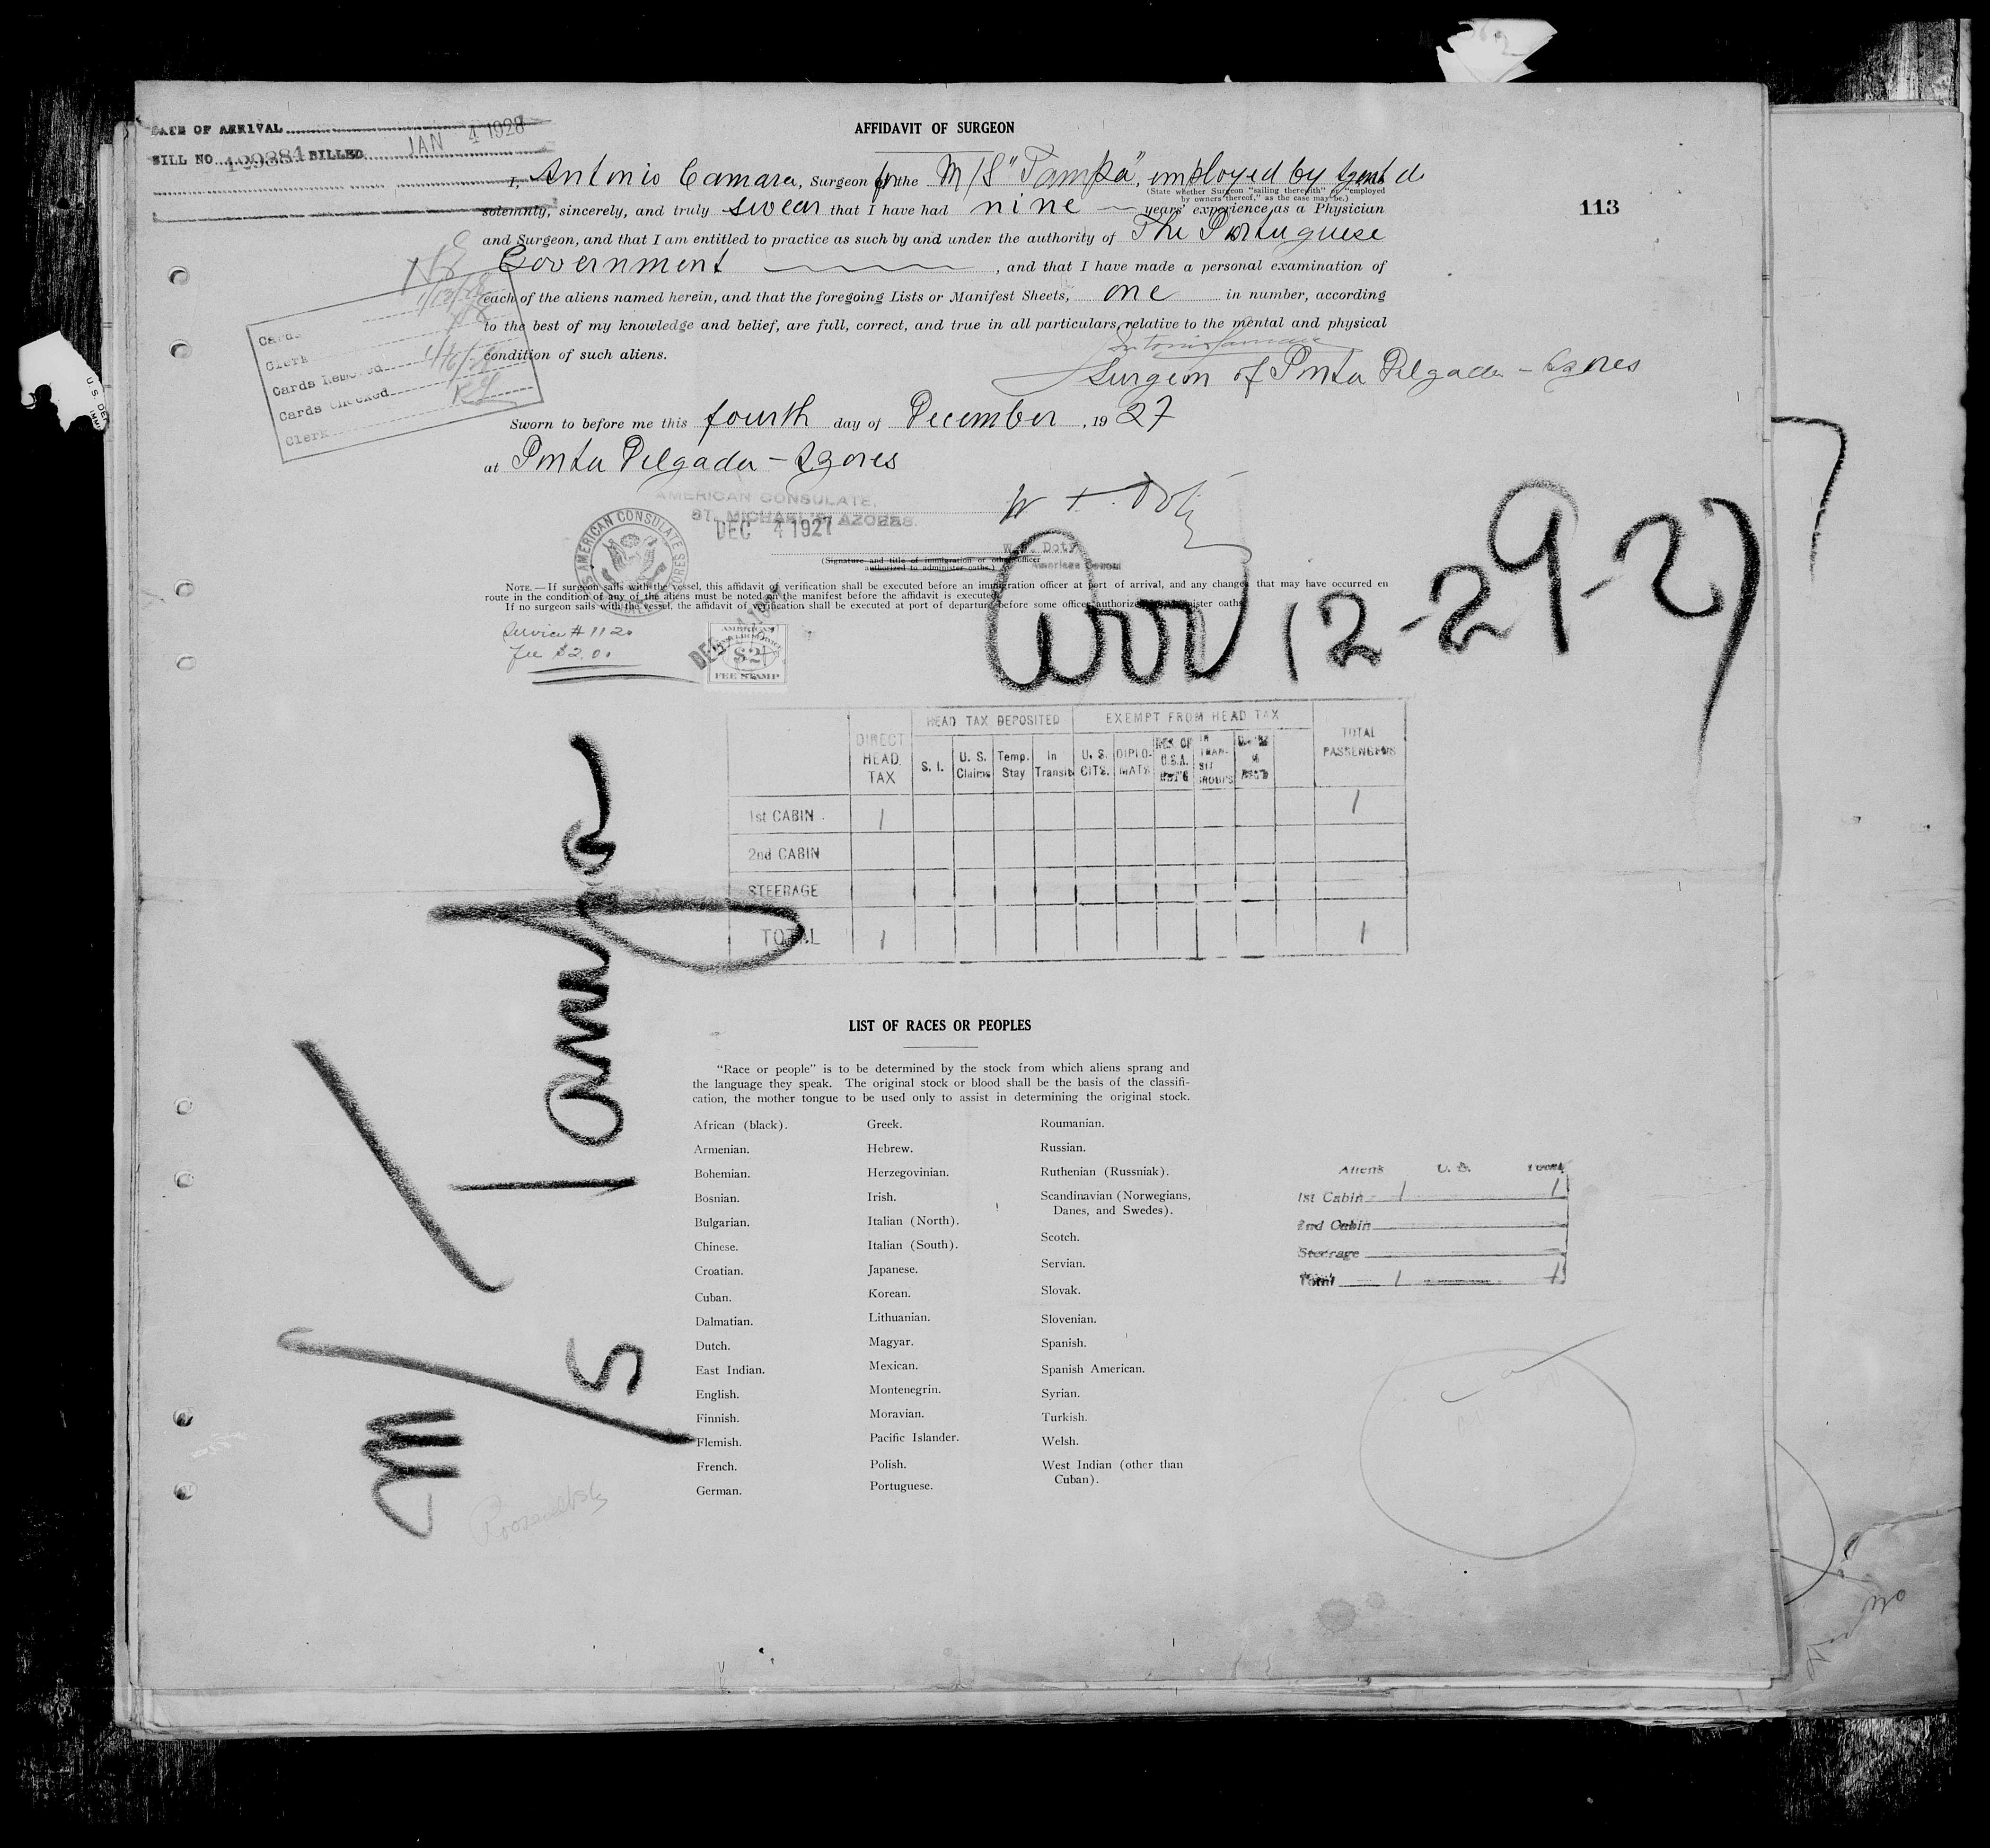 DATE OF ARRIVAL JAN 4 1928
BILL NO. 129384 BILLED
AFFIDAVIT OF SURGEON
113
I, Antonio Camara, Surgeon for the M/S "Tampa", employed by Agent d
(State whether Surgeon "sailing therewith" or "employed
by owners thereof," as the case may be.)
solemnly, sincerely, and truly swear that I have had nine years' experience as a Physician
and Surgeon, and that I am entitled to practice as such by and under the authority of The Portuguese
Government, and that I have made a personal examination of
each of the aliens named herein, and that the foregoing Lists or Manifest Sheets, one in number, according
to the best of my knowledge and belief, are full, correct, and true in all particulars relative to the mental and physical
condition of such aliens.
Antonio Camara
Surgeon of Ponta Delgada - Azores
Cards
Clerk
Cards Removed
Cards Checked
Clerk
Sworn to before me this fourth day of December, 1927
at Ponta Delgada - Azores
AMERICAN CONSULATE,
ST. MICHAEL'S, AZORES.
DEC 4 1927
AMERICAN CONSULATE
W. F. Doty
W. F. Doty
American Consul
(Signature and title of immigration or other officer
authorized to administer oaths.)
NOTE.—If surgeon sails with the vessel, this affidavit of verification shall be executed before an immigration officer at port of arrival, and any changes that may have occurred en
route in the condition of any of the aliens must be noted on the manifest before the affidavit is executed.
If no surgeon sails with the vessel, the affidavit of verification shall be executed at port of departure before some officer authorized to administer oaths.
Service # 1120
fee $2.00
DEC 4 1927
AMERICAN
$2
FEE STAMP
Arr 12-29-27
HEAD TAX DEPOSITED EXEMPT FROM HEAD TAX
DIRECT HEAD TAX S. I. U. S. Claims Temp. Stay In Transit U. S. CITS. DIPLO- MATS RES. OF U.S.A. IN TRAN- SIT GROUPS TOTAL PASSENGERS
1st CABIN 1 1
2nd CABIN
STEERAGE
TOTAL 1 1
M/S Tampa
LIST OF RACES OR PEOPLES
"Race or people" is to be determined by the stock from which aliens sprang and
the language they speak. The original stock or blood shall be the basis of the classifi-
cation, the mother tongue to be used only to assist in determining the original stock.
African (black).
Armenian.
Bohemian.
Bosnian.
Bulgarian.
Chinese.
Croatian.
Cuban.
Dalmatian.
Dutch.
East Indian.
English.
Finnish.
Flemish.
French.
German.
Greek.
Hebrew.
Herzegovinian.
Irish.
Italian (North).
Italian (South).
Japanese.
Korean.
Lithuanian.
Magyar.
Mexican.
Montenegrin.
Moravian.
Pacific Islander.
Polish.
Portuguese.
Roumanian.
Russian.
Ruthenian (Russniak).
Scandinavian (Norwegians,
Danes, and Swedes).
Scotch.
Servian.
Slovak.
Slovenian.
Spanish.
Spanish American.
Syrian.
Turkish.
Welsh.
West Indian (other than
Cuban).
Aliens U. S. Total
1st Cabin 1 1
2nd Cabin
Steerage
Total 1 1